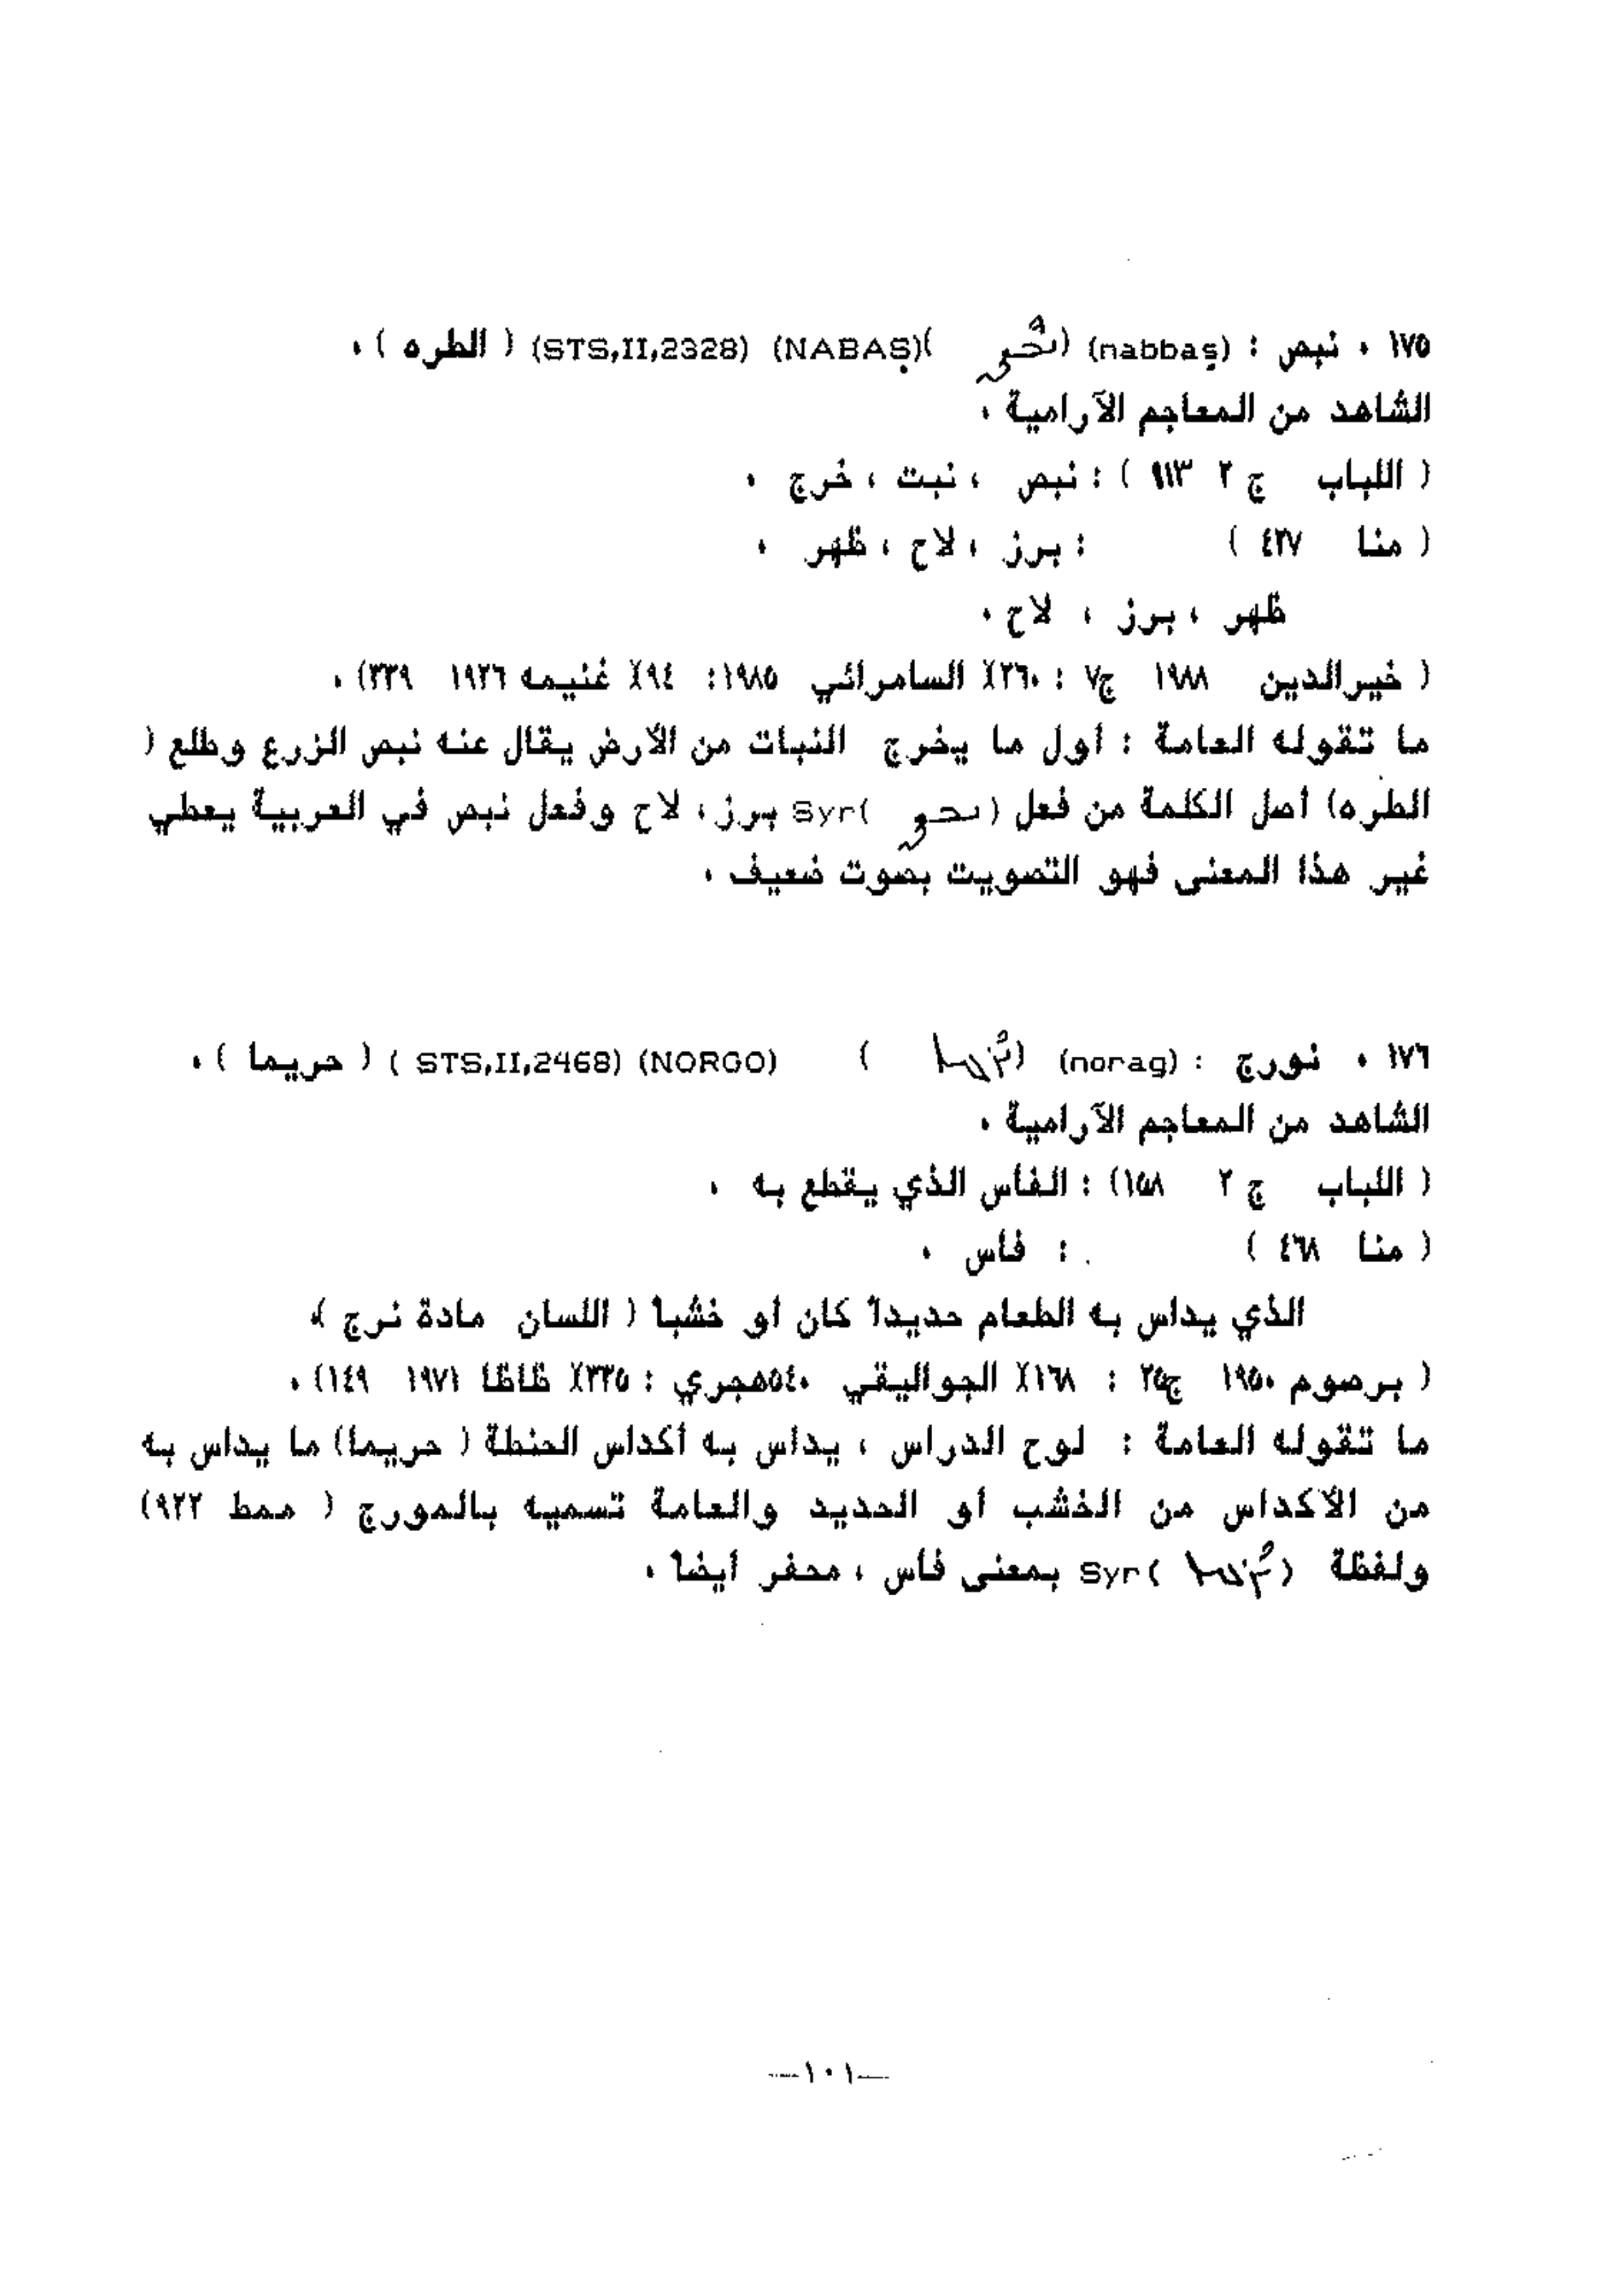 ١٧٥ ٠ نبص : (nabbaṣ) (ܢܒܨ) (NABAṢ) (STS,II,2328) ( الطره ) ٠
الشاهد من المعاجم الآرامية ٠
( اللباب ج ٢ ٩١٣ ) : نبص ، نبت ، خرج ٠
( منا ٤٢٧ ) : برز ، لاح ، ظهر ٠
ظهر ، برز ، لاح ٠
( خيرالدين ١٩٨٨ ج٧ : ٢٦٠)( السامرائي ١٩٨٥: ٩٤)( غنيمه ١٩٢٦ ٣٣٩) ٠
ما تقوله العامة : أول ما يخرج النبات من الأرض يقال عنه نبص الزرع وطلع (
الطره) أصل الكلمة من فعل (ܢܒܨ) Syr برز، لاح وفعل نبص في العربية يعطي
غير هذا المعنى فهو التصويت بصوت ضعيف ٠
١٧٦ ٠ نورج : (norag) (ܢܪܓܐ) (NORGO) (STS,II,2468 ) ( حريما ) ٠
الشاهد من المعاجم الآرامية ٠
( اللباب ج ٢ ١٥٨) : الفأس الذي يقطع به ٠
( منا ٤٦٨ ) : فأس ٠
الذي يداس به الطعام حديداً كان أو خشباً ( اللسان مادة نرج )٠
( برصوم ١٩٥٠ ج٢٥ : ١٦٨)( الجواليقي ٥٤٠هجري : ٣٣٥)( ظاظا ١٩٧١ ١٤٩) ٠
ما تقوله العامة : لوح الدراس ، يداس به أكداس الحنطة ( حريما) ما يداس به
من الأكداس من الخشب أو الحديد والعامة تسميه بالمورج ( ممط ٩٢٢)
ولفظة (ܢܪܓܐ) Syr بمعنى فأس ، محفر أيضاً ٠
—١٠١—